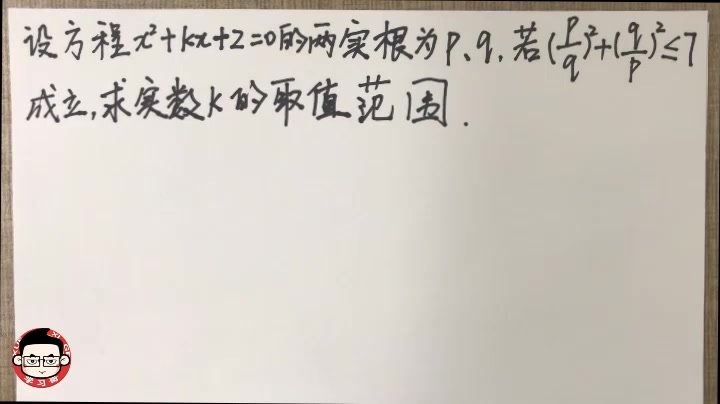 设方程x²+kx+2=0的两实根为p、q,若(p/q)²+(q/p)²≤7
成立,求实数k的取值范围.
学习帮